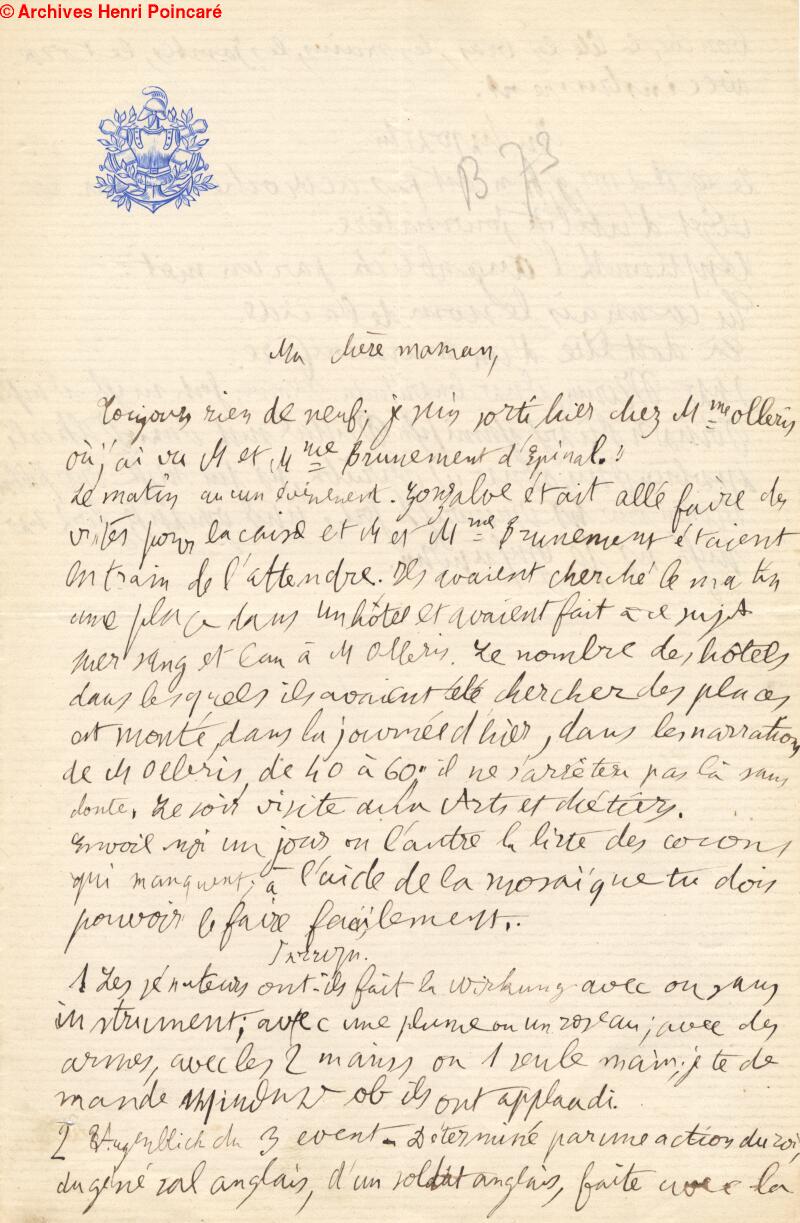 © Archives Henri Poincaré
B 73
Ma chère maman,
Toujours rien de neuf; je suis sorti hier chez Mme Olleris
où j'ai vu M et Mme Brunement d'Epinal.!
Le matin aucun évènement. Gonzalve était allé faire des
visites pour la caisse et M et Mme Brunement étaient
en train de l'attendre. Ils avaient cherché le matin
une place dans un hôtel et avaient fait à ce sujet
suer sang et eau à M Olleris. Le nombre des hôtels
dans lesquels ils avaient été chercher des places
est monté, dans la journée d'hier, dans les narrations
de M Olleris, de 40 à 60; il ne s'arrêtera pas là sans
doute. Le soir visite aux Arts et Métiers.
Envoie moi un jour ou l'autre la liste des cocons
qui manquent; à l'aide de la mosaïque tu dois
pouvoir le faire facilement.
1 Les sénateurs ont-ils fait la wirkung avec ou sans
instrument; avec une plume ou un roseau; avec des
armes, avec les 2 mains ou 1 seule main; je te de
mande ob ils ont applaudi.
2 Augenblick du 3 event. Déterminé par une action du roi,
du général anglais, d'un soldat anglais, faite avec la